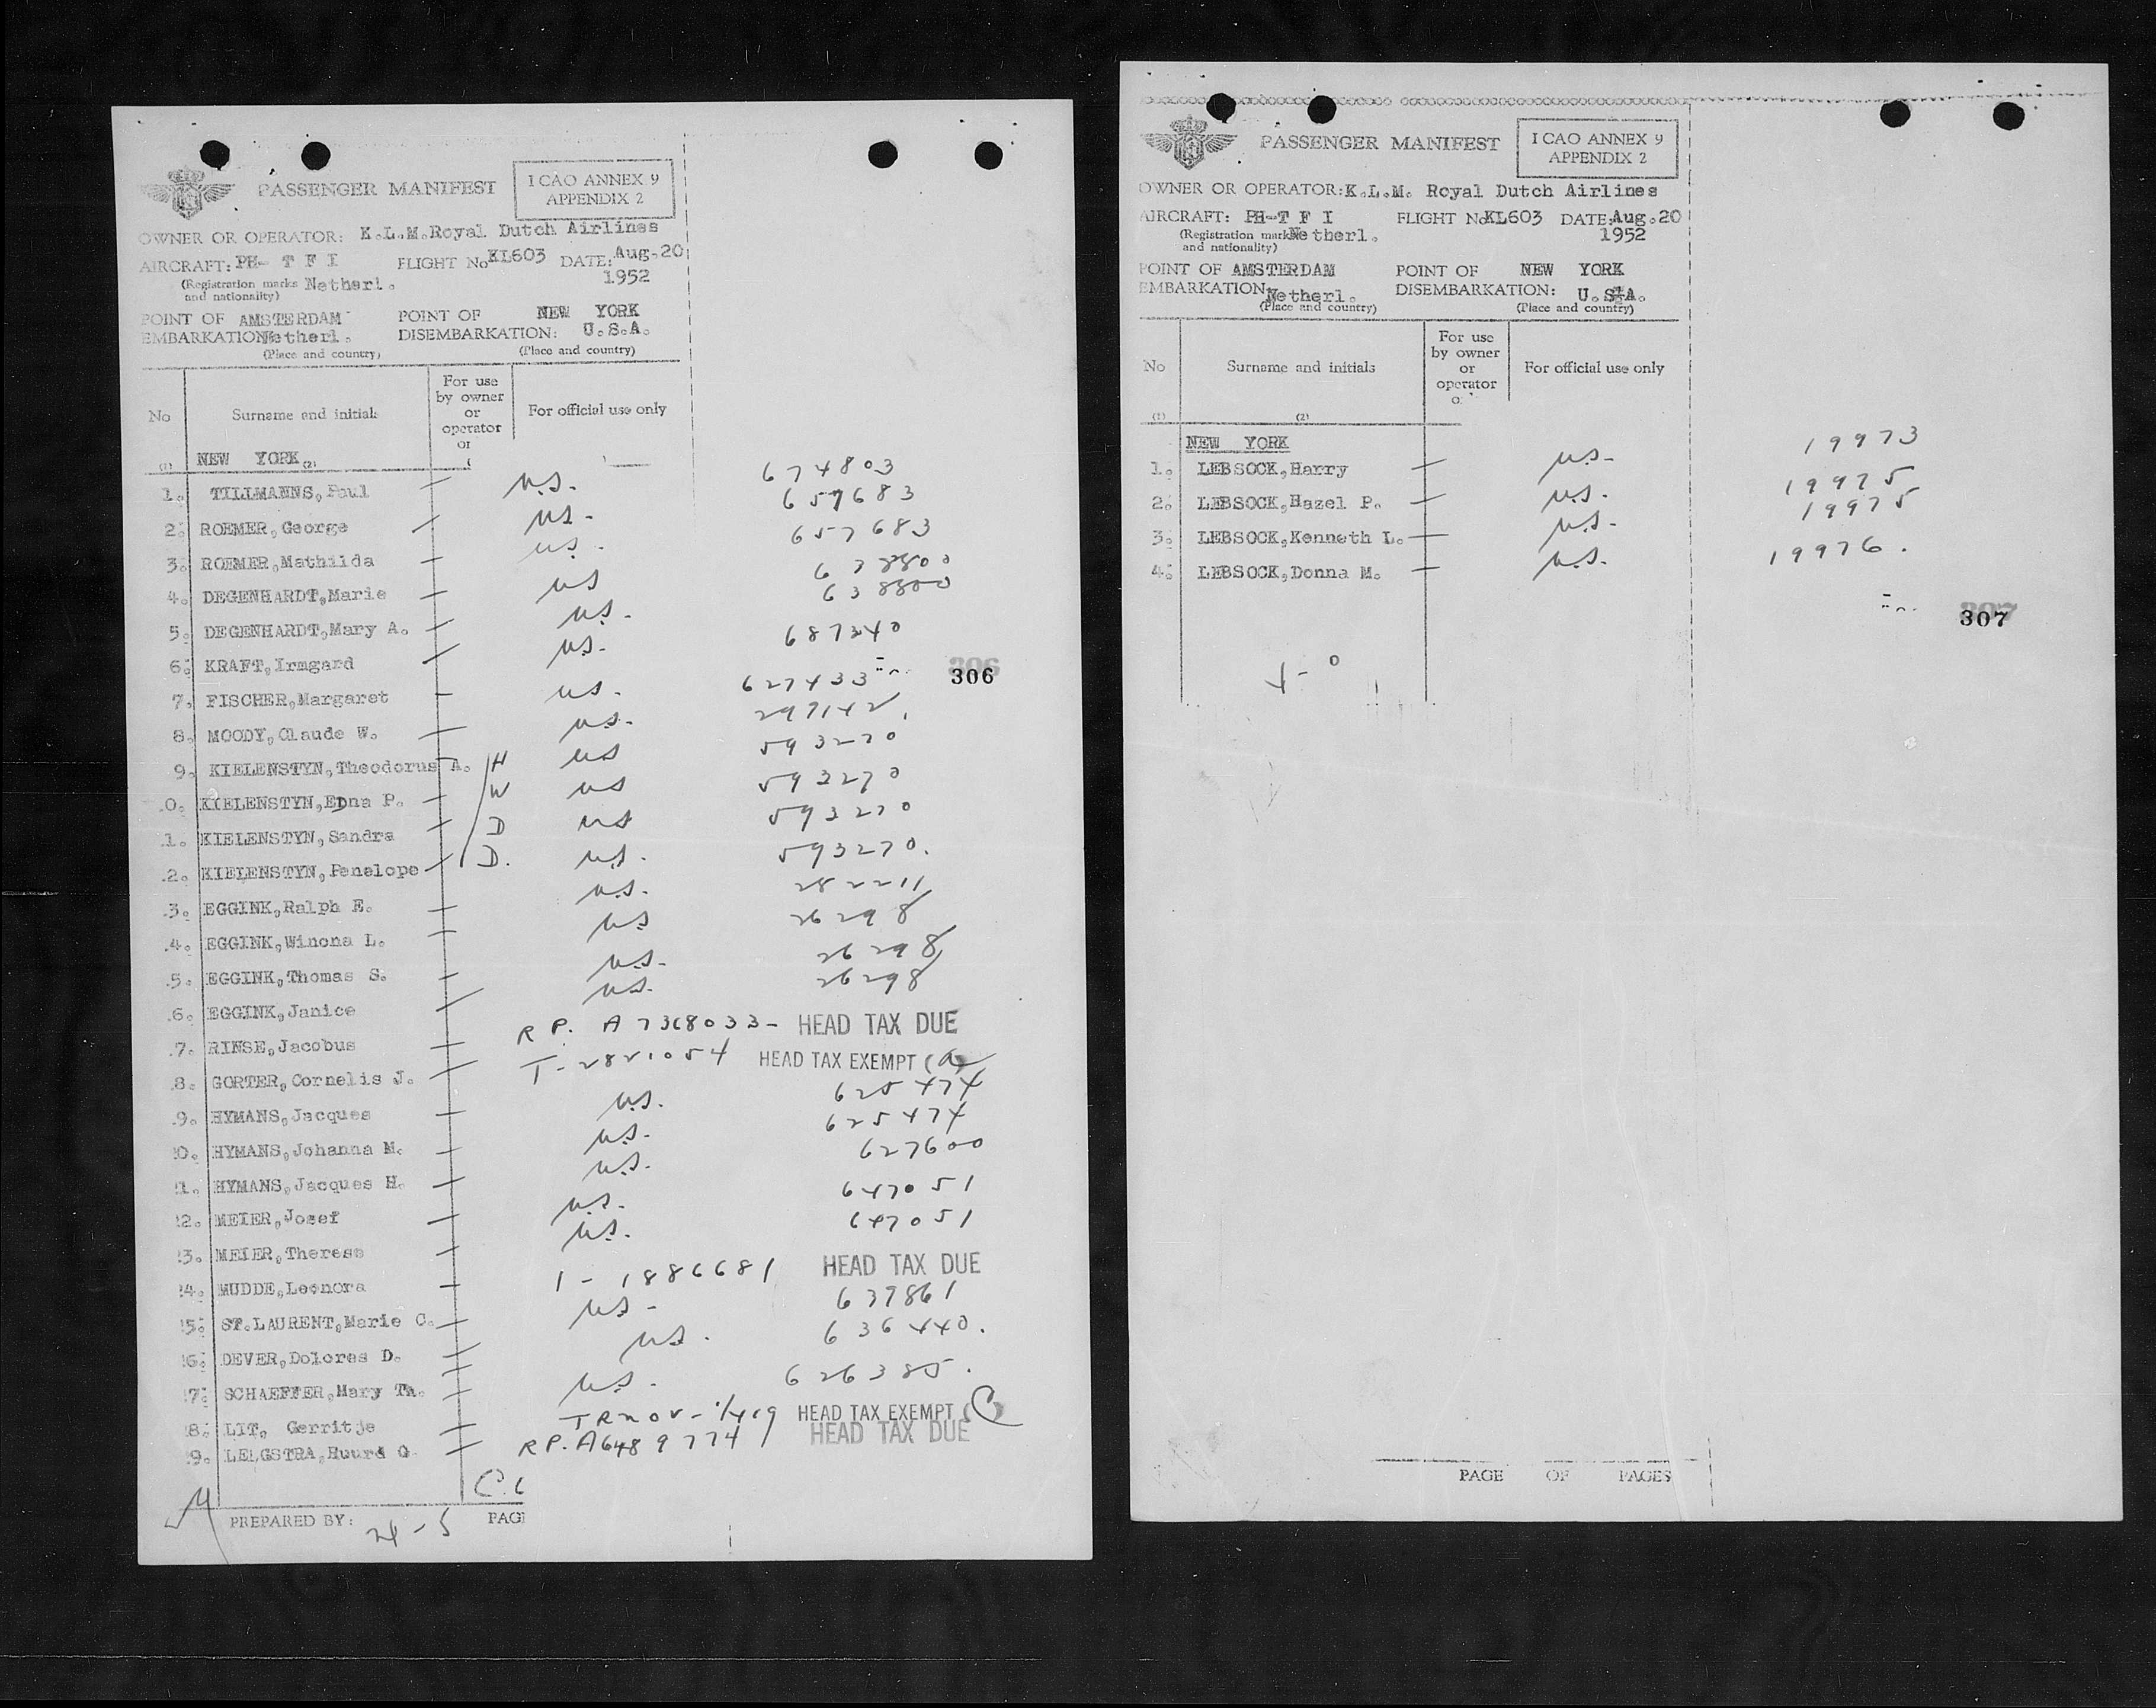 PASSENGER MANIFEST
I CAO ANNEX 9
APPENDIX 2
OWNER OR OPERATOR: K.L.M.Royal Dutch Airlines
AIRCRAFT: PH- T F I FLIGHT No KL603 DATE: Aug.20
(Registration marks Netherl. 1952
and nationality)
POINT OF AMSTERDAM POINT OF NEW YORK
EMBARKATION Netherl. DISEMBARKATION: U.S.A.
(Place and country) (Place and country)
No Surname and initials For use by owner or operator For official use only
(1) NEW YORK (2)
1. TILLMANNS,Paul — U.S. 674803
2. ROEMER,George — U.S. 657683
3. ROEMER,Mathilda — U.S. 657683
4. DEGENHARDT,Marie — US 638800
5. DEGENHARDT,Mary A. — U.S. 638800
6. KRAFT,Irmgard — U.S. 687340
306
7. FISCHER,Margaret — U.S. 627433
8. MOODY,Claude W. — U.S. 297142
9. KIELENSTYN,Theodorus A. H US 593270
.0. KIELENSTYN,EDna P. — W US 593270
.1. KIELENSTYN,Sandra — D US 593270
.2. KIELENSTYN,Penelope — D. U.S. 593270.
.3. EGGINK,Ralph E. — U.S. 282211
.4. EGGINK,Winona L. — US 26298
.5. EGGINK,Thomas S. — U.S. 26298
.6. EGGINK,Janice — U.S. 26298
.7. RINSE,Jacobus — R P. A7368033- HEAD TAX DUE
.8. GORTER,Cornelis J. — T-2821054 HEAD TAX EXEMPT (a
.9. HYMANS,Jacques — U.S. 625474
0. HYMANS,Johanna M. — U.S. 625474
1. HYMANS,Jacques H. — U.S. 627600
2. MEIER,Josef — U.S. 647051
3. MEIER,Therese — U.S. 647051
4. MUDDE,Leonora — 1-1886681 HEAD TAX DUE
5. ST.LAURENT,Marie C. — U.S. 637861
6. DEVER,Dolores D. — U.S. 636440.
7. SCHAEFFER,Mary Th. — U.S. 626385.
8. LIT, Gerritje — HEAD TAX EXEMPT C
9. Ruurd — RP.A6489774 HEAD TAX DUE
PREPARED BY: 24-5 PAG
PASSENGER MANIFEST
I CAO ANNEX 9
APPENDIX 2
OWNER OR OPERATOR:K.L.M. Royal Dutch Airlines
AIRCRAFT: PH-T F I FLIGHT No KL603 DATE:Aug.20
(Registration marks Netherl. 1952
and nationality)
POINT OF AMSTERDAM POINT OF NEW YORK
EMBARKATION Netherl. DISEMBARKATION: U.S.A.
(Place and country) (Place and country)
No Surname and initials For use by owner or operator For official use only
(1) (2)
NEW YORK
1. LEBSOCK,Harry — U.S. 19973
2. LEBSOCK,Hazel P. — U.S. 19975
3. LEBSOCK,Kenneth L. — U.S. 19975
4. LEBSOCK,Donna M. — U.S. 19976.
307
4-0
PAGE OF PAGES